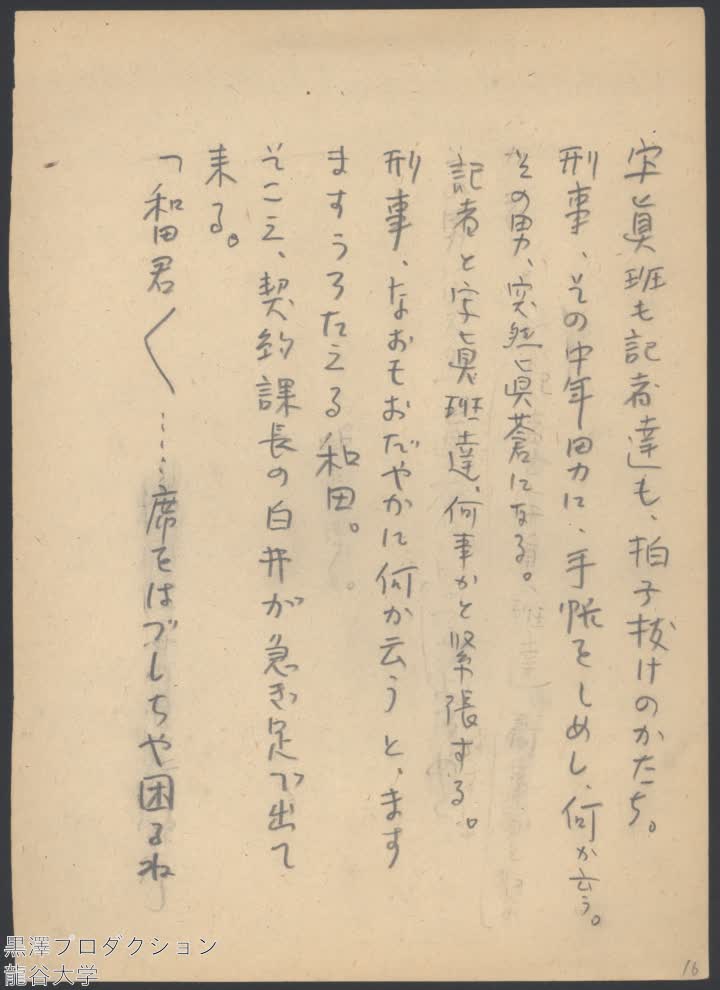 写眞班も記者達も、拍子抜けのかたち。
刑事、その中年男に、手帳をしめし、何か云う。
その男、突然眞蒼になる。
記者と写眞班達、何事かと緊張する。
刑事、なおもおだやかに何か云うと、ます
ますうろたえる和田。
そこえ、契約課長の白井が急ぎ足で出て
来る。
「和田君〱……席をはづしちや困るね
16
黒澤プロダクション
龍谷大学